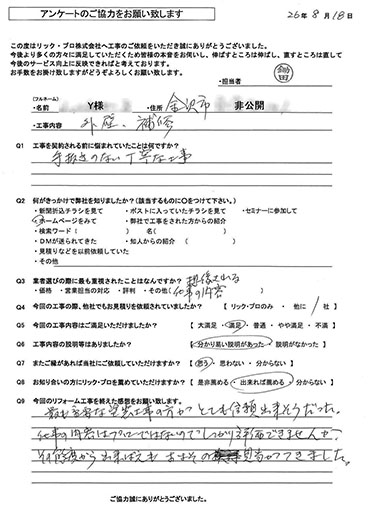 アンケートのご協力をお願い致します
26年 8月 18日
この度はリック・プロ株式会社へ工事のご依頼をいただき誠にありがとうございました。
今後より多くの方々に満足していただくため皆様の本音をお伺いし、伸ばすところは伸ばし、直すところは直して
今後のサービス向上に反映できればと考えております。
お手数をお掛け致しますがどうぞよろしくお願い致します。
・担当者
(フルネーム)
・名前 Y様 ・住所 金沢市 非公開
・工事内容 外壁、補修
Q1 工事を契約される前に悩まれていたことは何ですか?
手抜きのない丁寧な工事
Q2 何がきっかけで弊社を知りましたか?(該当するものに○をつけて下さい。)
・新聞折込チラシを見て ・ポストに入っていたチラシを見て ・セミナーに参加して
・ホームページをみて ・弊社で工事をされた方からの紹介
・検索ワード( ) 名( )
・DMが送られてきた ・知人からの紹介( )
・見積りなどを以前依頼していた
・その他
Q3 業者選びの際に最も重視されたことはなんですか?
・価格 ・営業担当の対応 ・評判 ・その他( 想像される仕事の内容
Q4 今回の工事の際、他社でもお見積りを依頼されていましたか? 【 リック・プロのみ ・ 他に 1 社 】
Q5 今回の工事内容はご満足いただけましたか? 【 大満足 ・ 満足 ・ 普通 ・ やや満足 ・ 不満 】
Q6 工事内容の説明等はありましたか? 【 分かり易い説明があった ・ 説明がなかった 】
Q7 またご縁があれば当社にご依頼していただけますか? 【 思う ・ 思わない ・ 分からない 】
Q8 お知り合いの方にリック・プロを薦めていただけますか? 【 是非薦める ・ 出来れば薦める ・ 分からない 】
Q9 今回のリフォーム工事を終えた感想をお願い致します。
工事の方がとても信頼出来そうだった。
仕事の内容はプローではないのでしっかり評価できませんが、
見当がつきました。
ご協力誠にありがとうございました。